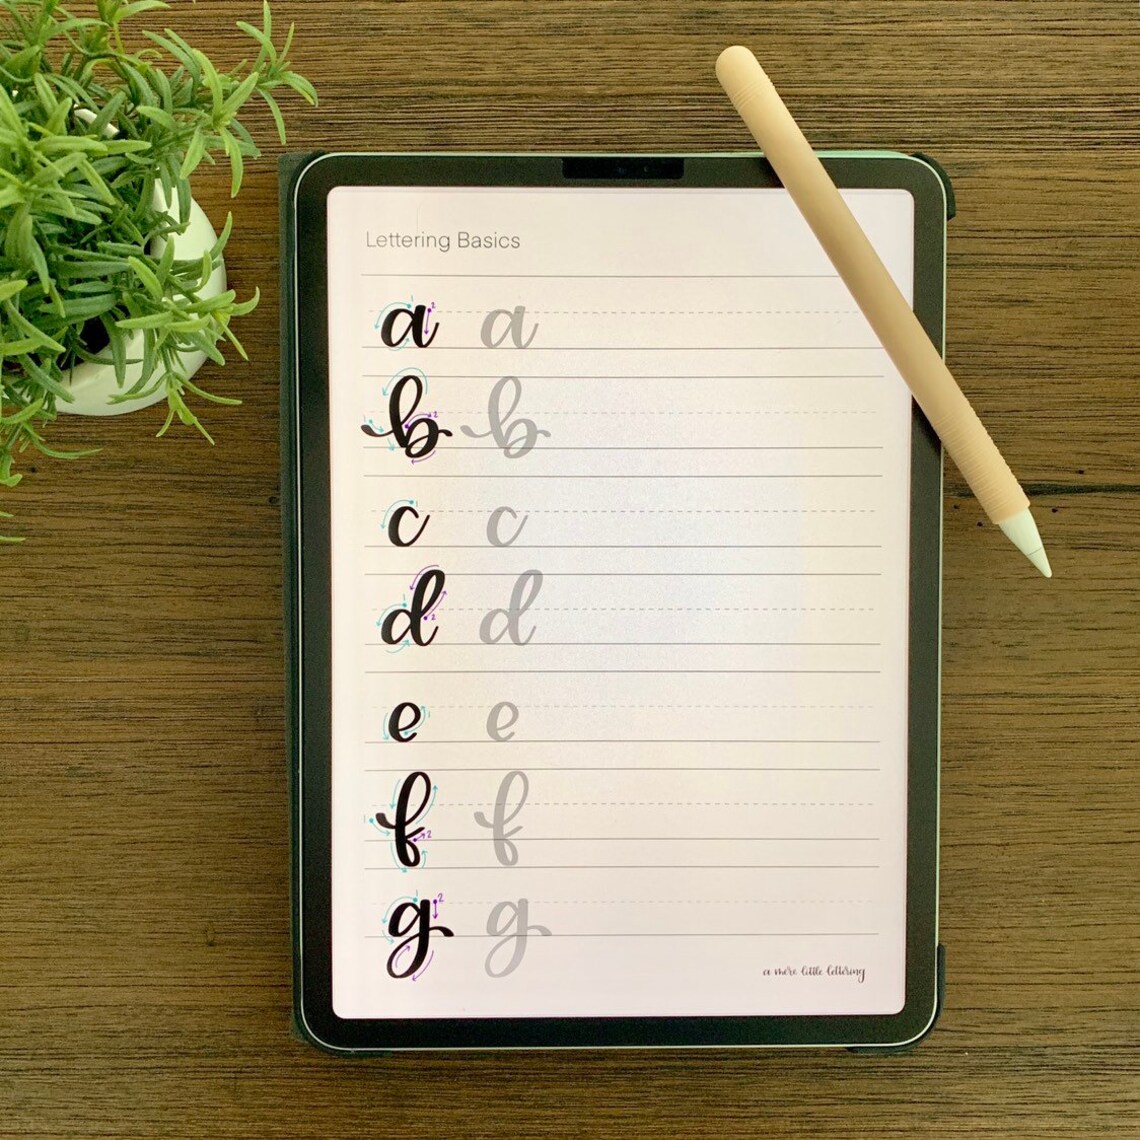 Lettering Basics
a a
b b
c c
d d
e e
f f
g g
a mere little lettering